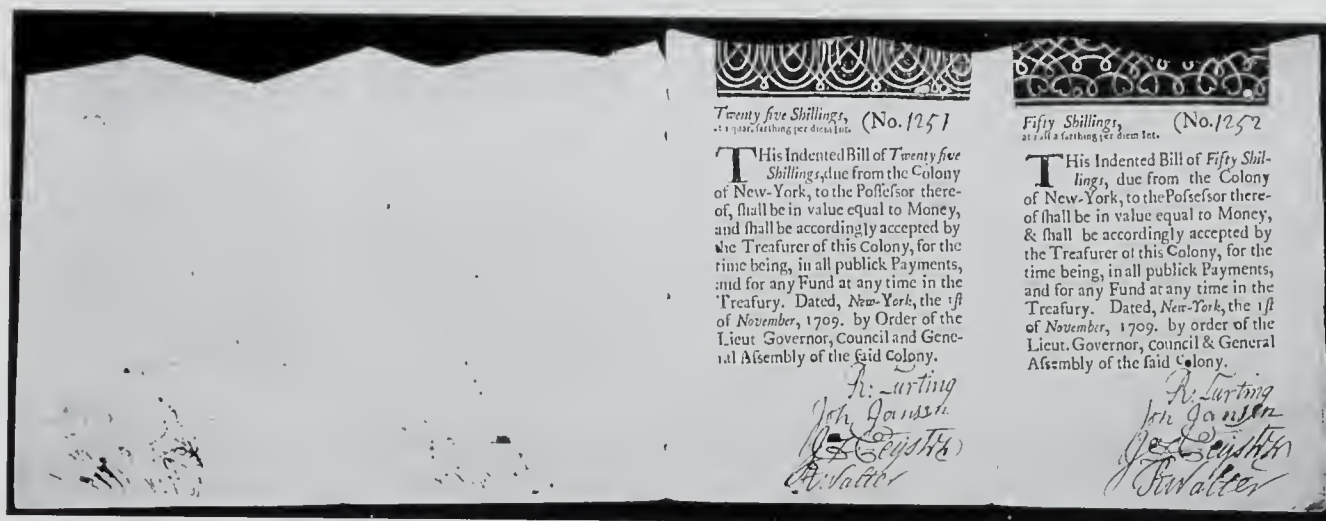 Twenty five Shillings, (No. 1251
at 1 quar. farthing per diem Int.
THis Indented Bill of Twenty five
Shillings, due from the Colony
of New-York, to the Poſſeſsor there-
of, ſhall be in value equal to Money,
and ſhall be accordingly accepted by
the Treaſurer of this Colony, for the
time being, in all publick Payments,
and for any Fund at any time in the
Treaſury. Dated, New-York, the 1ſt
of November, 1709. by Order of the
Lieut Governor, Council and Gene-
ral Aſsembly of the ſaid Colony.
R: Lurting
Joh Jansen
JDePeyster
R: Walter
Fifty Shillings, (No. 1252
at half a farthing per diem Int.
THis Indented Bill of Fifty Shil-
lings, due from the Colony
of New-York, to the Poſſeſsor there-
of ſhall be in value equal to Money,
& ſhall be accordingly accepted by
the Treaſurer of this Colony, for the
time being, in all publick Payments,
and for any Fund at any time in the
Treaſury. Dated, New-York, the 1ſt
of November, 1709. by order of the
Lieut. Governor, council & General
Aſsembly of the ſaid Colony.
R: Lurting
Joh Jansen
JDePeyster
R Walter